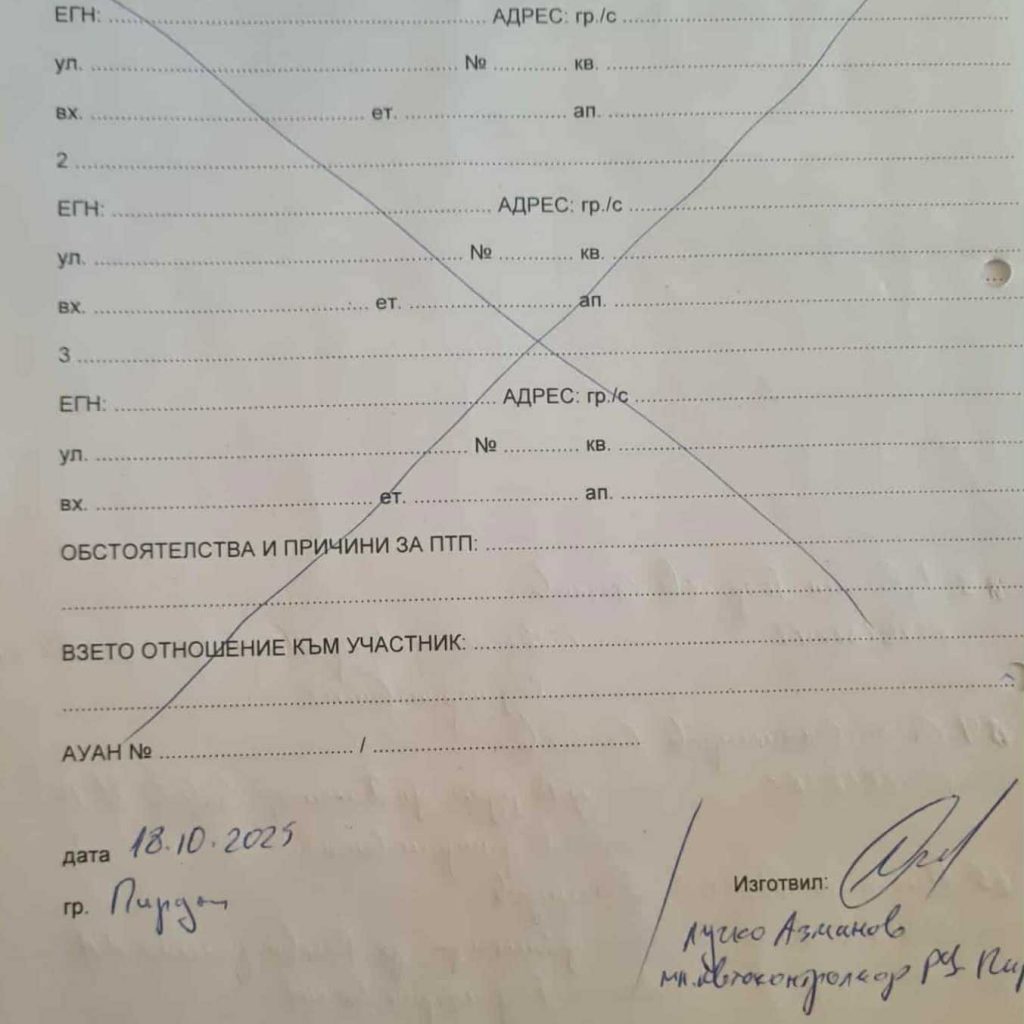 ЕГН: ........................ АДРЕС: гр./с ........................
ул. ........................ № ............ кв. ........................
вх. ........................ ет. ........................ ап. ........................
2 ........................
ЕГН: ........................ АДРЕС: гр./с ........................
ул. ........................ № ............ кв. ........................
вх. ........................ ет. ........................ ап. ........................
3 ........................
ЕГН: ........................ АДРЕС: гр./с ........................
ул. ........................ № ............ кв. ........................
вх. ........................ ет. ........................ ап. ........................
ОБСТОЯТЕЛСТВА И ПРИЧИНИ ЗА ПТП: ........................
ВЗЕТО ОТНОШЕНИЕ КЪМ УЧАСТНИК: ........................
АУАН № ........................ / ........................
дата 18.10.2025
гр. Пирдоп
Изготвил:
Азманов
мл. автоконтрольор РУ